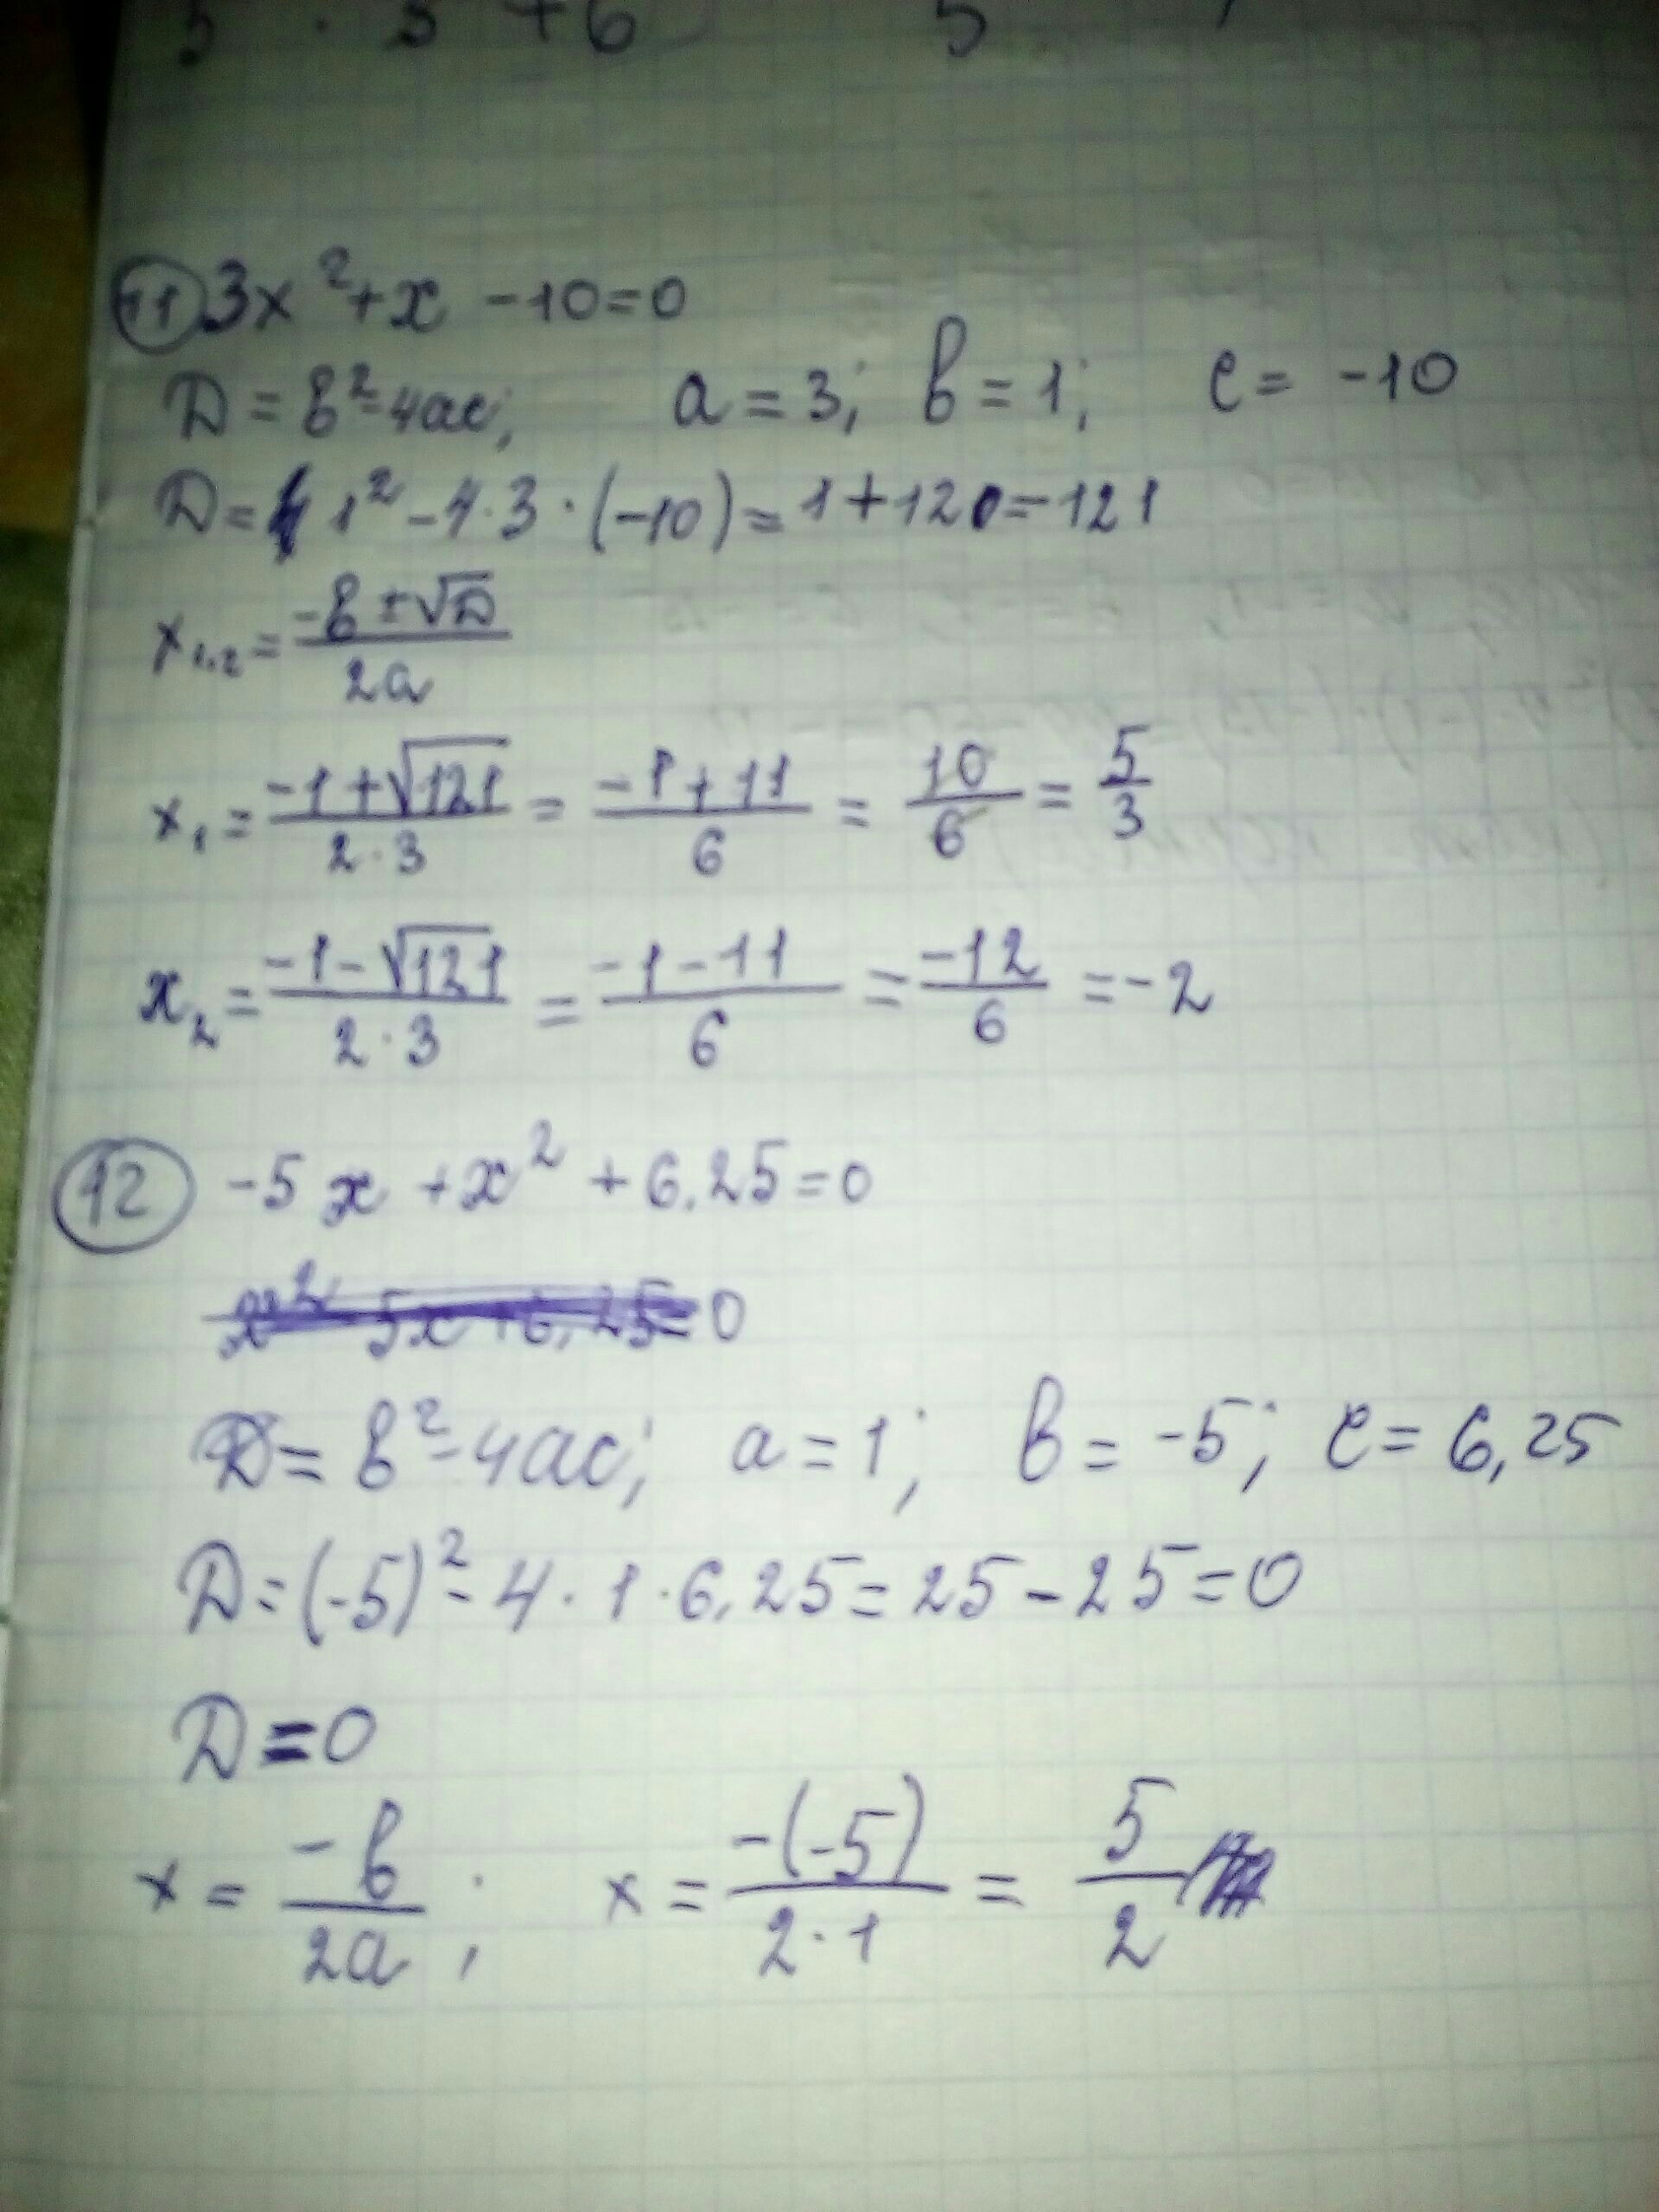 5 · 3 + 6 5
11 3x² + x - 10 = 0
D = b² - 4ac; a = 3; b = 1; c = -10
D = 1² - 4 · 3 · (-10) = 1 + 120 = 121
x₁,₂ = (-b ± √D) / 2a
x₁ = (-1 + √121) / (2 · 3) = (-1 + 11) / 6 = 10/6 = 5/3
x₂ = (-1 - √121) / (2 · 3) = (-1 - 11) / 6 = -12/6 = -2
12 -5x + x² + 6,25 = 0
x² - 5x + 6,25 = 0
D = b² - 4ac; a = 1; b = -5; c = 6,25
D = (-5)² - 4 · 1 · 6,25 = 25 - 25 = 0
D = 0
x = -b / 2a; x = -(-5) / (2 · 1) = 5/2